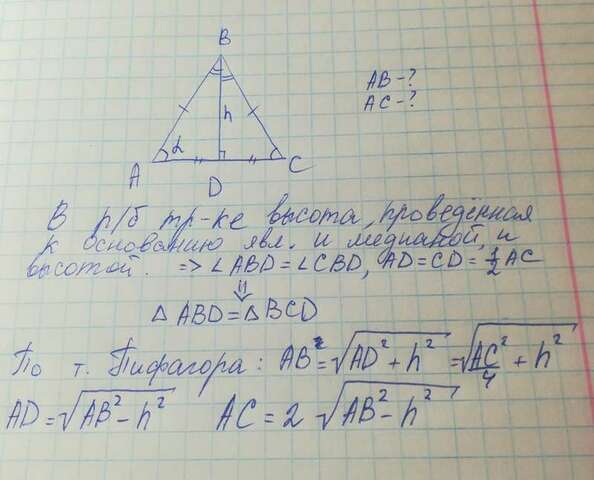 B
AB-?
AC-?
h
α
A
D
C
В р/б тр-ке высота, проведённая
к основанию явл. и медианой, и
высотой. => ∠ABD = ∠CBD, AD = CD = 1/2 AC
⇓
△ ABD = △ BCD
По т. Пифагора: AB = √(AD² + h²) = √(AC²/4 + h²)
AD = √(AB² - h²) AC = 2 √(AB² - h²)